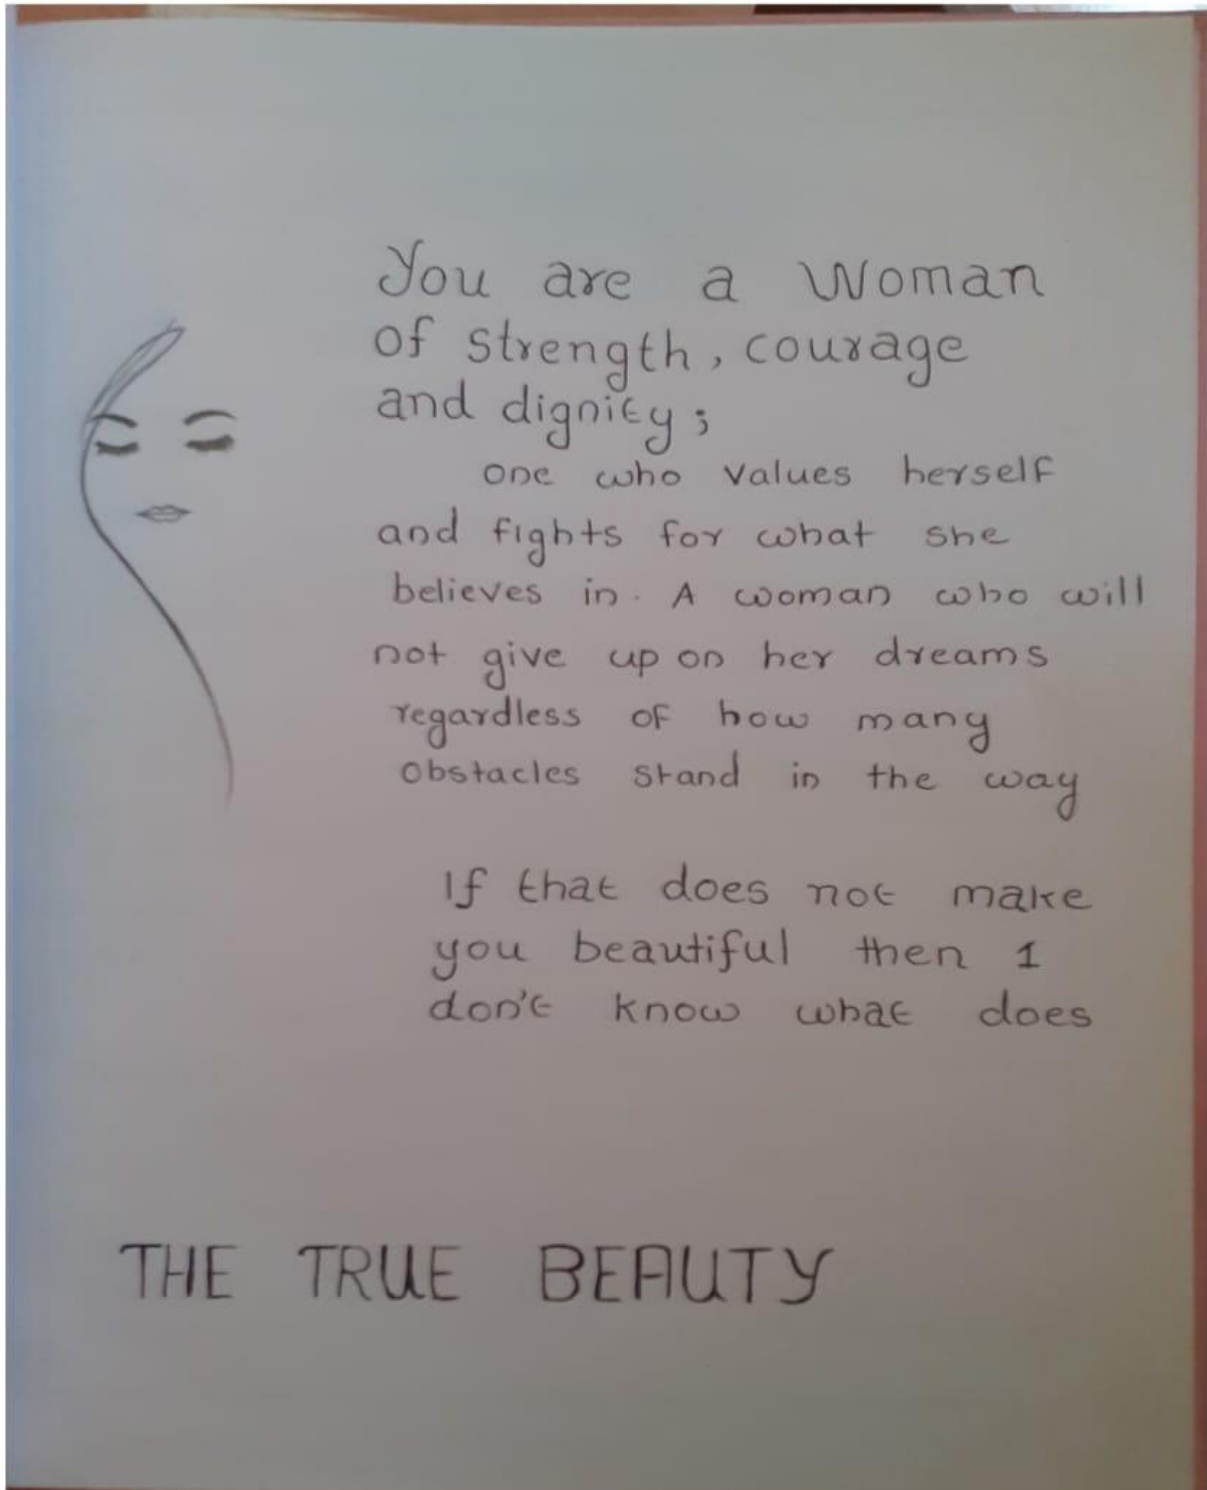 You are a Woman
of strength, courage
and dignity;
one who values herself
and fights for what she
believes in. A woman who will
not give up on her dreams
regardless of how many
obstacles stand in the way
If that does not make
you beautiful then I
don't know what does
THE TRUE BEAUTY